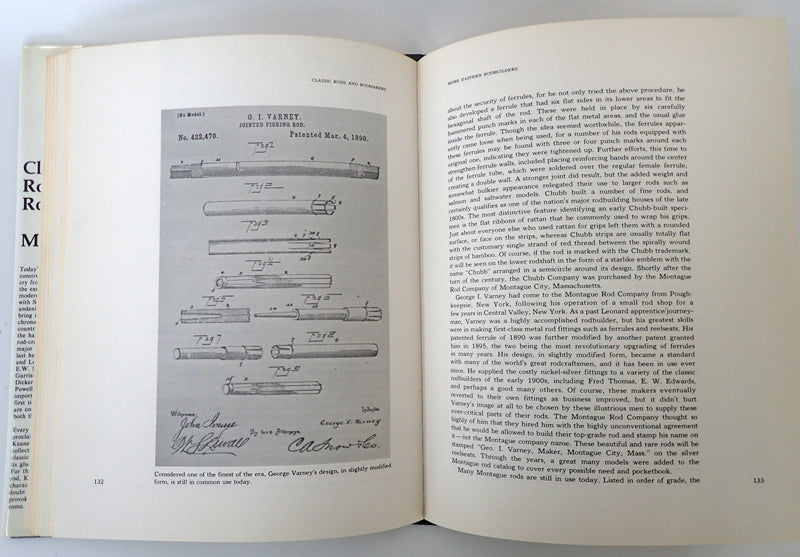 Cl
Ro
Ro
M
Today'
constru
cry fro
the ear
modern
with S
undeni
bring
chrono
country
the ha
rod-cra
major
last hu
and Le
E.W. 
Garris
Dicker
Powell
import
first t
are co
both th
Every
procla
Keane
collect
classic
his glu
For th
rod, K
chanic
doubt
provok
come.
CLASSIC RODS AND RODMAKERS
(No Model.)
G. I. VARNEY.
JOINTED FISHING ROD.
No. 422,470.
Patented Mar. 4, 1890.
Fig 1
Fig 2
Fig 3
Fig 4
Fig 5
Fig 6
Fig 7
Fig 8
Fig 9
Witnesses
Inventor
George I. Varney
By his Attorneys
C.A. Snow & Co.
Considered one of the finest of the era, George Varney's design, in slightly modified
form, is still in common use today.
132
MORE EASTERN RODBUILDERS
about the security of ferrules, for he not only tried the above procedure, he
also developed a ferrule that had six flat sides in its lower areas to fit the
hexagonal shaft of the rod. These were held in place by six carefully
hammered punch marks in each of the flat metal areas, and the usual glue
inside the ferrule. Though the idea seemed worthwhile, the ferrules appar-
ently came loose when being used, for a number of his rods equipped with
these ferrules may be found with three or four punch marks around each
original one, indicating they were tightened up. Further efforts, this time to
strengthen ferrule walls, included placing reinforcing bands around the center
of the ferrule tube, which were soldered over the regular female ferrule,
creating a double wall. A stronger joint did result, but the added weight and
somewhat bulkier appearance relegated their use to larger rods such as
salmon and saltwater models. Chubb built a number of fine rods, and
certainly qualifies as one of the nation's major rodbuilding houses of the late
1800s. The most distinctive feature identifying an early Chubb-built speci-
men is the flat ribbons of rattan that he commonly used to wrap his grips.
Just about everyone else who used rattan for grips left them with a rounded
surface, or face on the strips, whereas Chubb strips are usually totally flat
with the customary single strand of red thread between the spirally wound
strips of bamboo. Of course, if the rod is marked with the Chubb trademark,
it will be seen on the lower rodshaft in the form of a starlike emblem with the
name "Chubb" arranged in a semicircle around its design. Shortly after the
turn of the century, the Chubb Company was purchased by the Montague
Rod Company of Montague City, Massachusetts.
George I. Varney had come to the Montague Rod Company from Pough-
keepsie, New York, following his operation of a small rod shop for a
few years in Central Valley, New York. As a past Leonard apprentice/journey-
man, Varney was a highly accomplished rodbuilder, but his greatest skills
were in making first-class metal rod fittings such as ferrules and reelseats. His
patented ferrule of 1890 was further modified by another patent granted
him in 1895, the two being the most revolutionary upgrading of ferrules
in many years. His design, in slightly modified form, became a standard
with many of the world's great rodcrafters, and it has been in use ever
since. He supplied the costly nickel-silver fittings to a variety of the classic
rodbuilders of the early 1900s, including Fred Thomas, E. W. Edwards,
and perhaps a good many others. Of course, these makers eventually
reverted to their own fittings as business improved, but it didn't hurt
Varney's image at all to be chosen by these illustrious men to supply these
ever-critical parts of their rods. The Montague Rod Company thought so
highly of him that they hired him with the highly unconventional agreement
that he would be allowed to build their top-grade rod and stamp his name on
it—not the Montague company name. These beautiful and rare rods will be
stamped "Geo. I. Varney, Maker, Montague City, Mass." on the silver
reelseats. Through the years, a great many models were added to the
Montague rod catalog to cover every possible need and pocketbook.
Many Montague rods are still in use today. Listed in order of grade, the
133